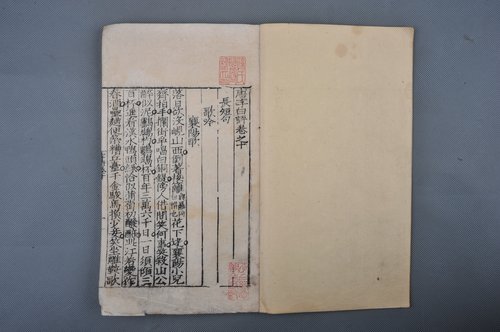 唐李白詩卷之十
長短句
歌吟
襄陽歌
落日欲沒峴山西倒著接䍦花下迷襄陽小兒
齊拍手攔街爭唱白銅鞮傍人借問笑何事笑殺山公
醉似泥鸕鶿杓鸚鵡杯百年三萬六千日一日須傾三
百杯遙看漢水鴨頭綠恰似葡萄初醱醅此江若變作
春酒壘麴便築糟丘臺千金駿馬換少妾笑坐雕鞍歌